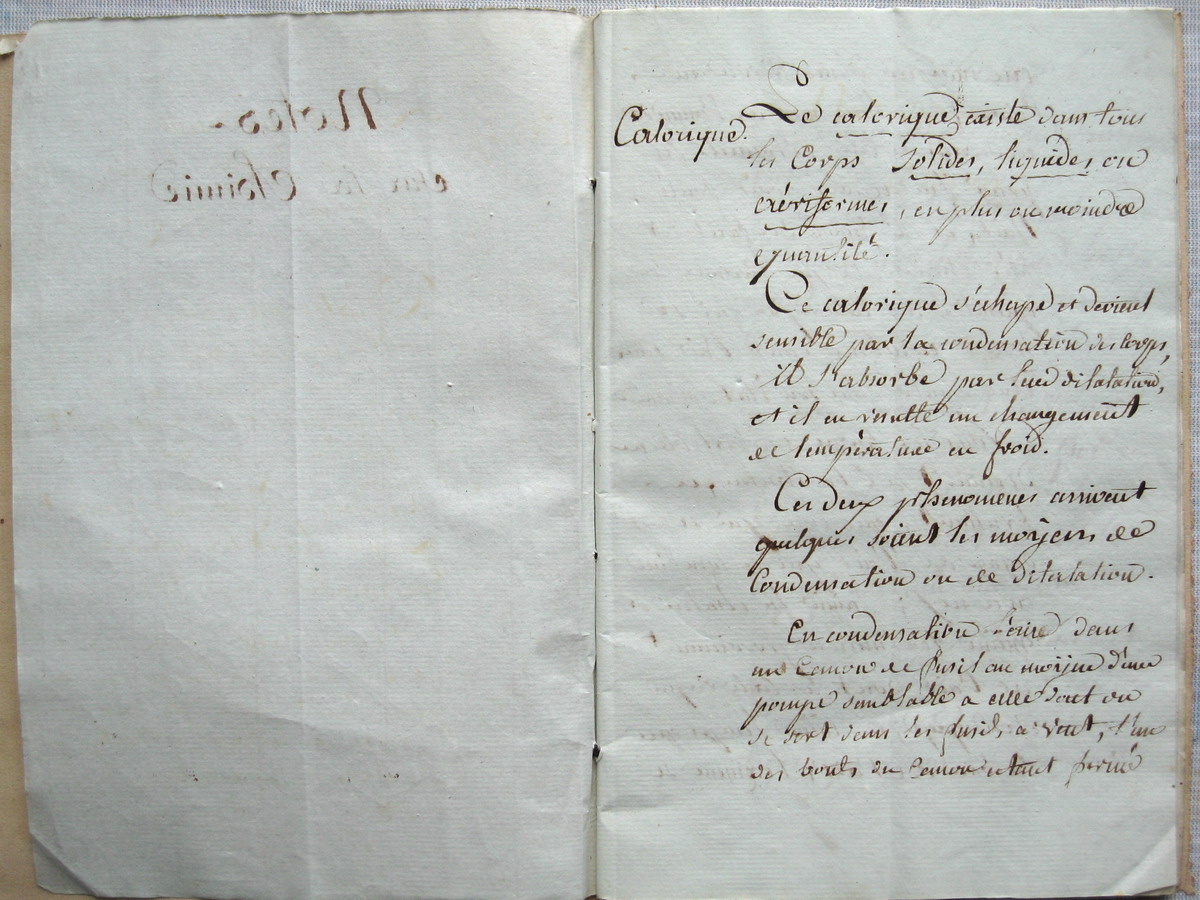 Notes
sur la Chimie
Calorique.
Le calorique existe dans tous
les Corps solides, liquides, ou
aëriformes, en plus ou moindre
quantité.
Ce calorique s'échape et devient
sensible par la condensation des corps,
il s'absorbe par leur dilatation,
et il en resulte un changement
de température en froid.
Ces deux phenomenes arrivent
quelques soient les moyens de
Condensation ou de dilatation.
En condensation l'air dans
un Canon de fusil au moyen d'une
pompe semblable a celle dont on
se sert dans les fusils a vent, l'un
des bouts du Canon etant fermé